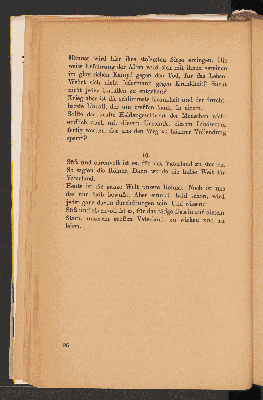 Männer wird hier ihre stolzesten Siege erringen. Die
weise Erfahrung der Alten wird sich mit ihnen vereinen
im glorreichen Kampf gegen den Tod, für das Leben.
Wehrt sich nicht jedermann gegen Krankheit? Sucht
nicht jeder Unfällen zu entgehen?
Krieg aber ist die schlimmste Krankheit und der furcht-
barste Unfall, der uns treffen kann, in einem.
Sollte der uralte Heldengeschlecht der Menschen nicht
endlich auch mit diesem
fertig werden, der uns den Weg zu höherer Vollendung
sperrt?
10.
Süß und ehrenvoll ist es, fürs Vaterland zu sterben.
So sagten die Römer. Dann wurde die halbe Welt ihr
Vaterland.
Heute ist die ganze Welt unsere Heimat. Noch ist uns
das nur halb bewußt. Aber schon, wird
jeder ganz davon durchdrungen sein. Und wissen:
Süß und ehrenvoll ist es, für das tätige Dasein auf diesem
Stern, unserem großen Vaterland, zu wirken und zu
leben.
26